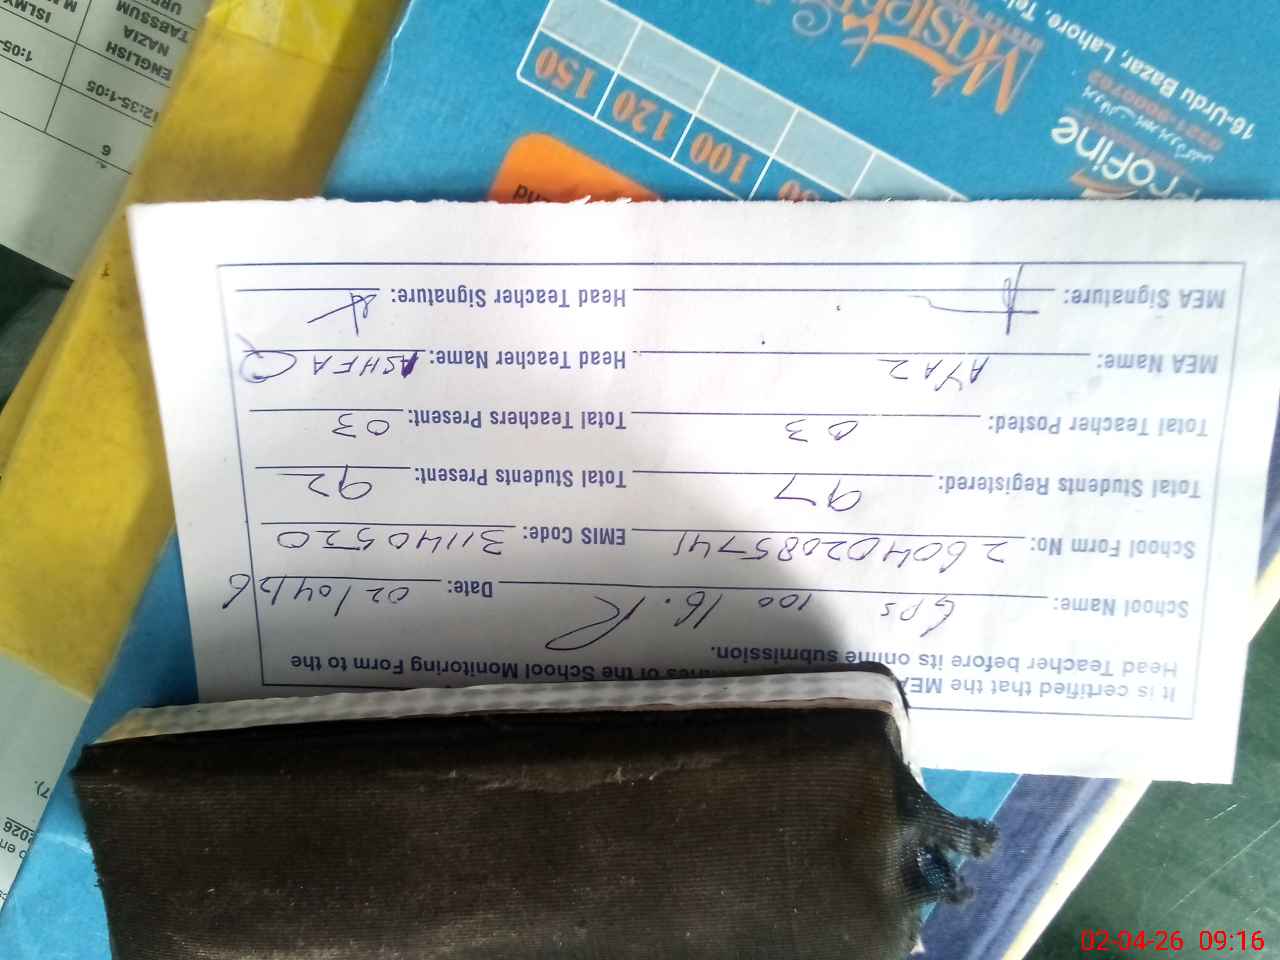 It is certified that the MEA
ines of the School Monitoring Form to the
Head Teacher before its online submission.
School Name: GPS 100 16.R Date: 02/04/26
School Form No: 260402085741 EMIS Code: 31140520
Total Students Registered: 97 Total Students Present: 92
Total Teacher Posted: 03 Total Teachers Present: 03
MEA Name: AYAZ Head Teacher Name: ASHFAQ
MEA Signature: Head Teacher Signature:
16-Urdu Bazar, Lahore. Tel
ProFine
Master
150 120 100
6
12:35-1:05
1:05-
ENGLISH
NAZIA
TABSSUM
2026
02-04-26 09:16